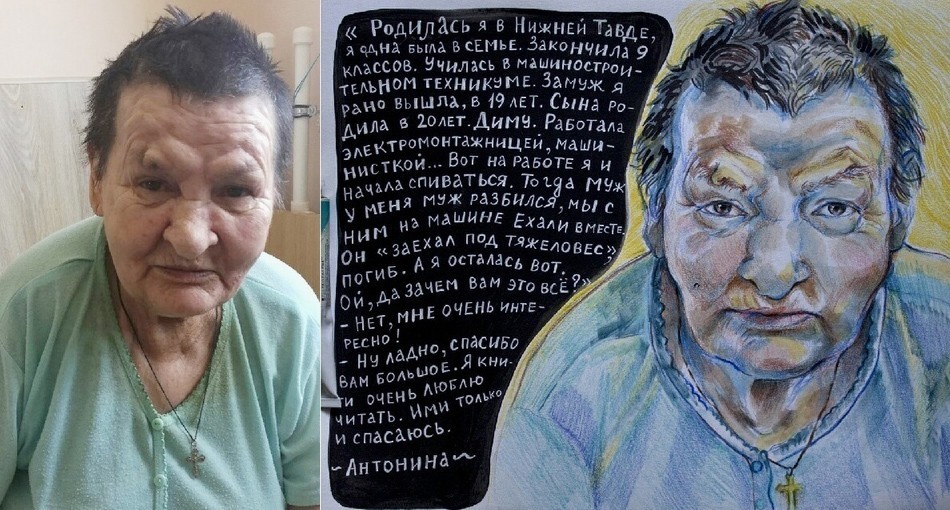 « Родилась я в Нижней Тавде,
я одна была в семье. Закончила 9
классов. Училась в машинострои-
тельном техникуме. Замуж я
рано вышла, в 19 лет. Сына ро-
дила в 20 лет. Диму. Работала
электромонтажницей, маши-
нисткой... Вот на работе я и
начала спиваться. Тогда муж
у меня муж разбился, мы с
ним на машине ехали вместе.
Он «заехал под тяжеловес»,
погиб. А я осталась вот.
Ой, да зачем вам это всё?»
- Нет, мне очень инте-
ресно!
- Ну ладно, спасибо
вам большое. Я кни-
ги очень люблю
читать. Ими только
и спасаюсь.
~Антонина~